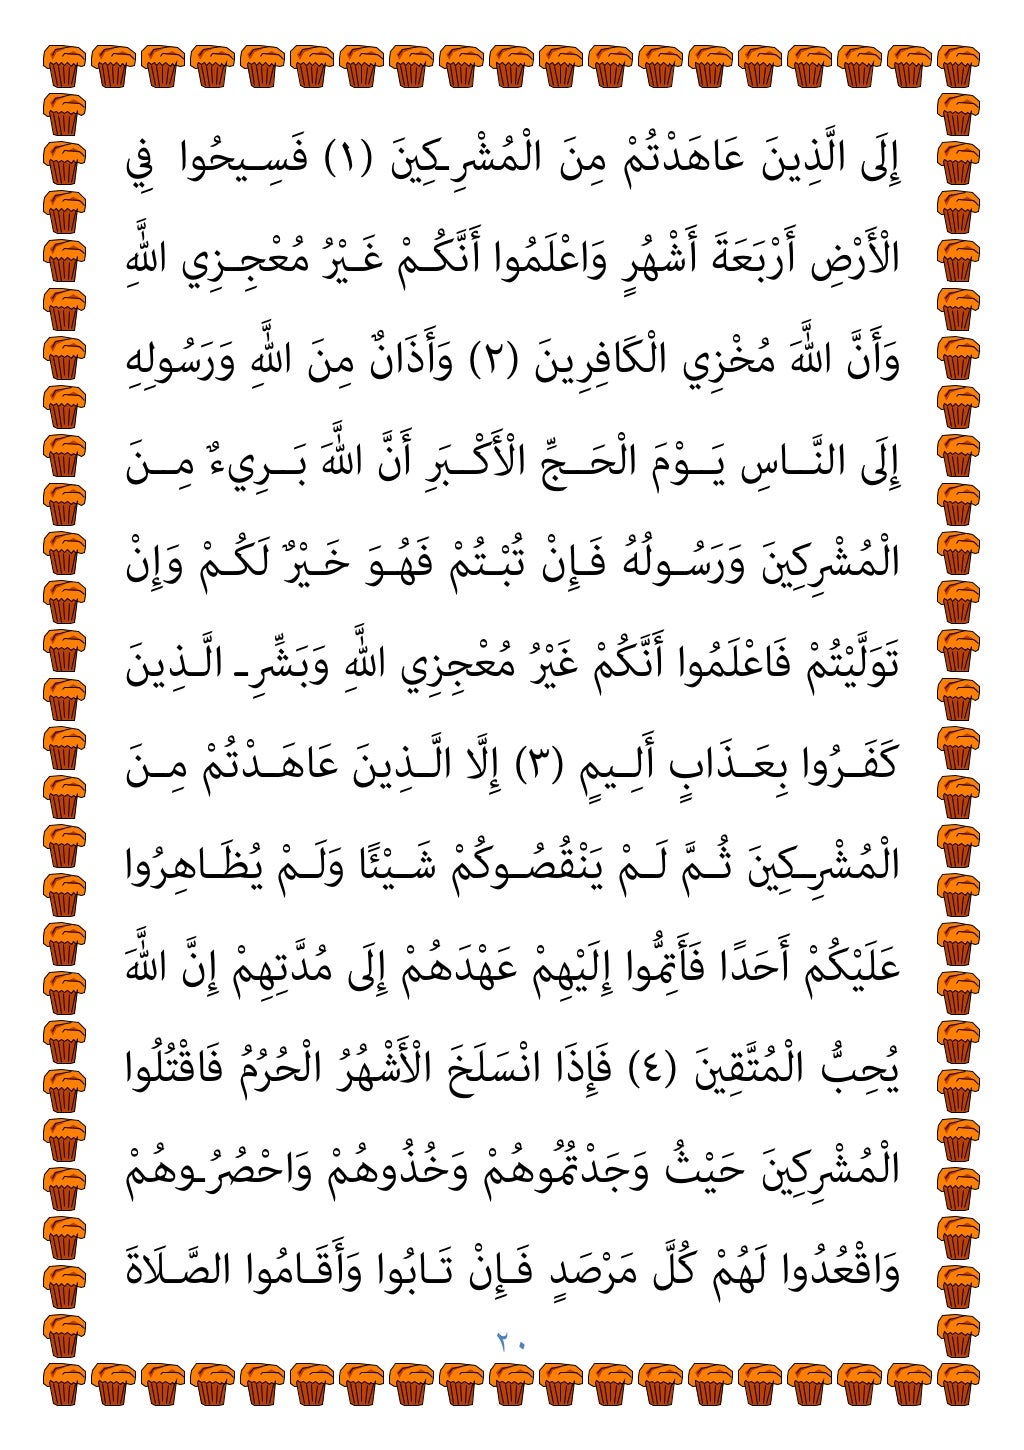 إِلَى الَّذِينَ عَاهَدْتُمْ مِنَ الْمُشْرِكِينَ (١) فَسِيحُوا فِي
الْأَرْضِ أَرْبَعَةَ أَشْهُرٍ وَاعْلَمُوا أَنَّكُمْ غَيْرُ مُعْجِزِي اللَّهِ
وَأَنَّ اللَّهَ مُخْزِي الْكَافِرِينَ (٢) وَأَذَانٌ مِنَ اللَّهِ وَرَسُولِهِ
إِلَى النَّاسِ يَوْمَ الْحَجِّ الْأَكْبَرِ أَنَّ اللَّهَ بَرِيءٌ مِنَ
الْمُشْرِكِينَ وَرَسُولُهُ فَإِنْ تُبْتُمْ فَهُوَ خَيْرٌ لَكُمْ وَإِنْ
تَوَلَّيْتُمْ فَاعْلَمُوا أَنَّكُمْ غَيْرُ مُعْجِزِي اللَّهِ وَبَشِّرِ الَّذِينَ
كَفَرُوا بِعَذَابٍ أَلِيمٍ (٣) إِلَّا الَّذِينَ عَاهَدْتُمْ مِنَ
الْمُشْرِكِينَ ثُمَّ لَمْ يَنْقُصُوكُمْ شَيْئًا وَلَمْ يُظَاهِرُوا
عَلَيْكُمْ أَحَدًا فَأَتِمُّوا إِلَيْهِمْ عَهْدَهُمْ إِلَى مُدَّتِهِمْ إِنَّ اللَّهَ
يُحِبُّ الْمُتَّقِينَ (٤) فَإِذَا انْسَلَخَ الْأَشْهُرُ الْحُرُمُ فَاقْتُلُوا
الْمُشْرِكِينَ حَيْثُ وَجَدْتُمُوهُمْ وَخُذُوهُمْ وَاحْصُرُوهُمْ
وَاقْعُدُوا لَهُمْ كُلَّ مَرْصَدٍ فَإِنْ تَابُوا وَأَقَامُوا الصَّلَاةَ
٢٠